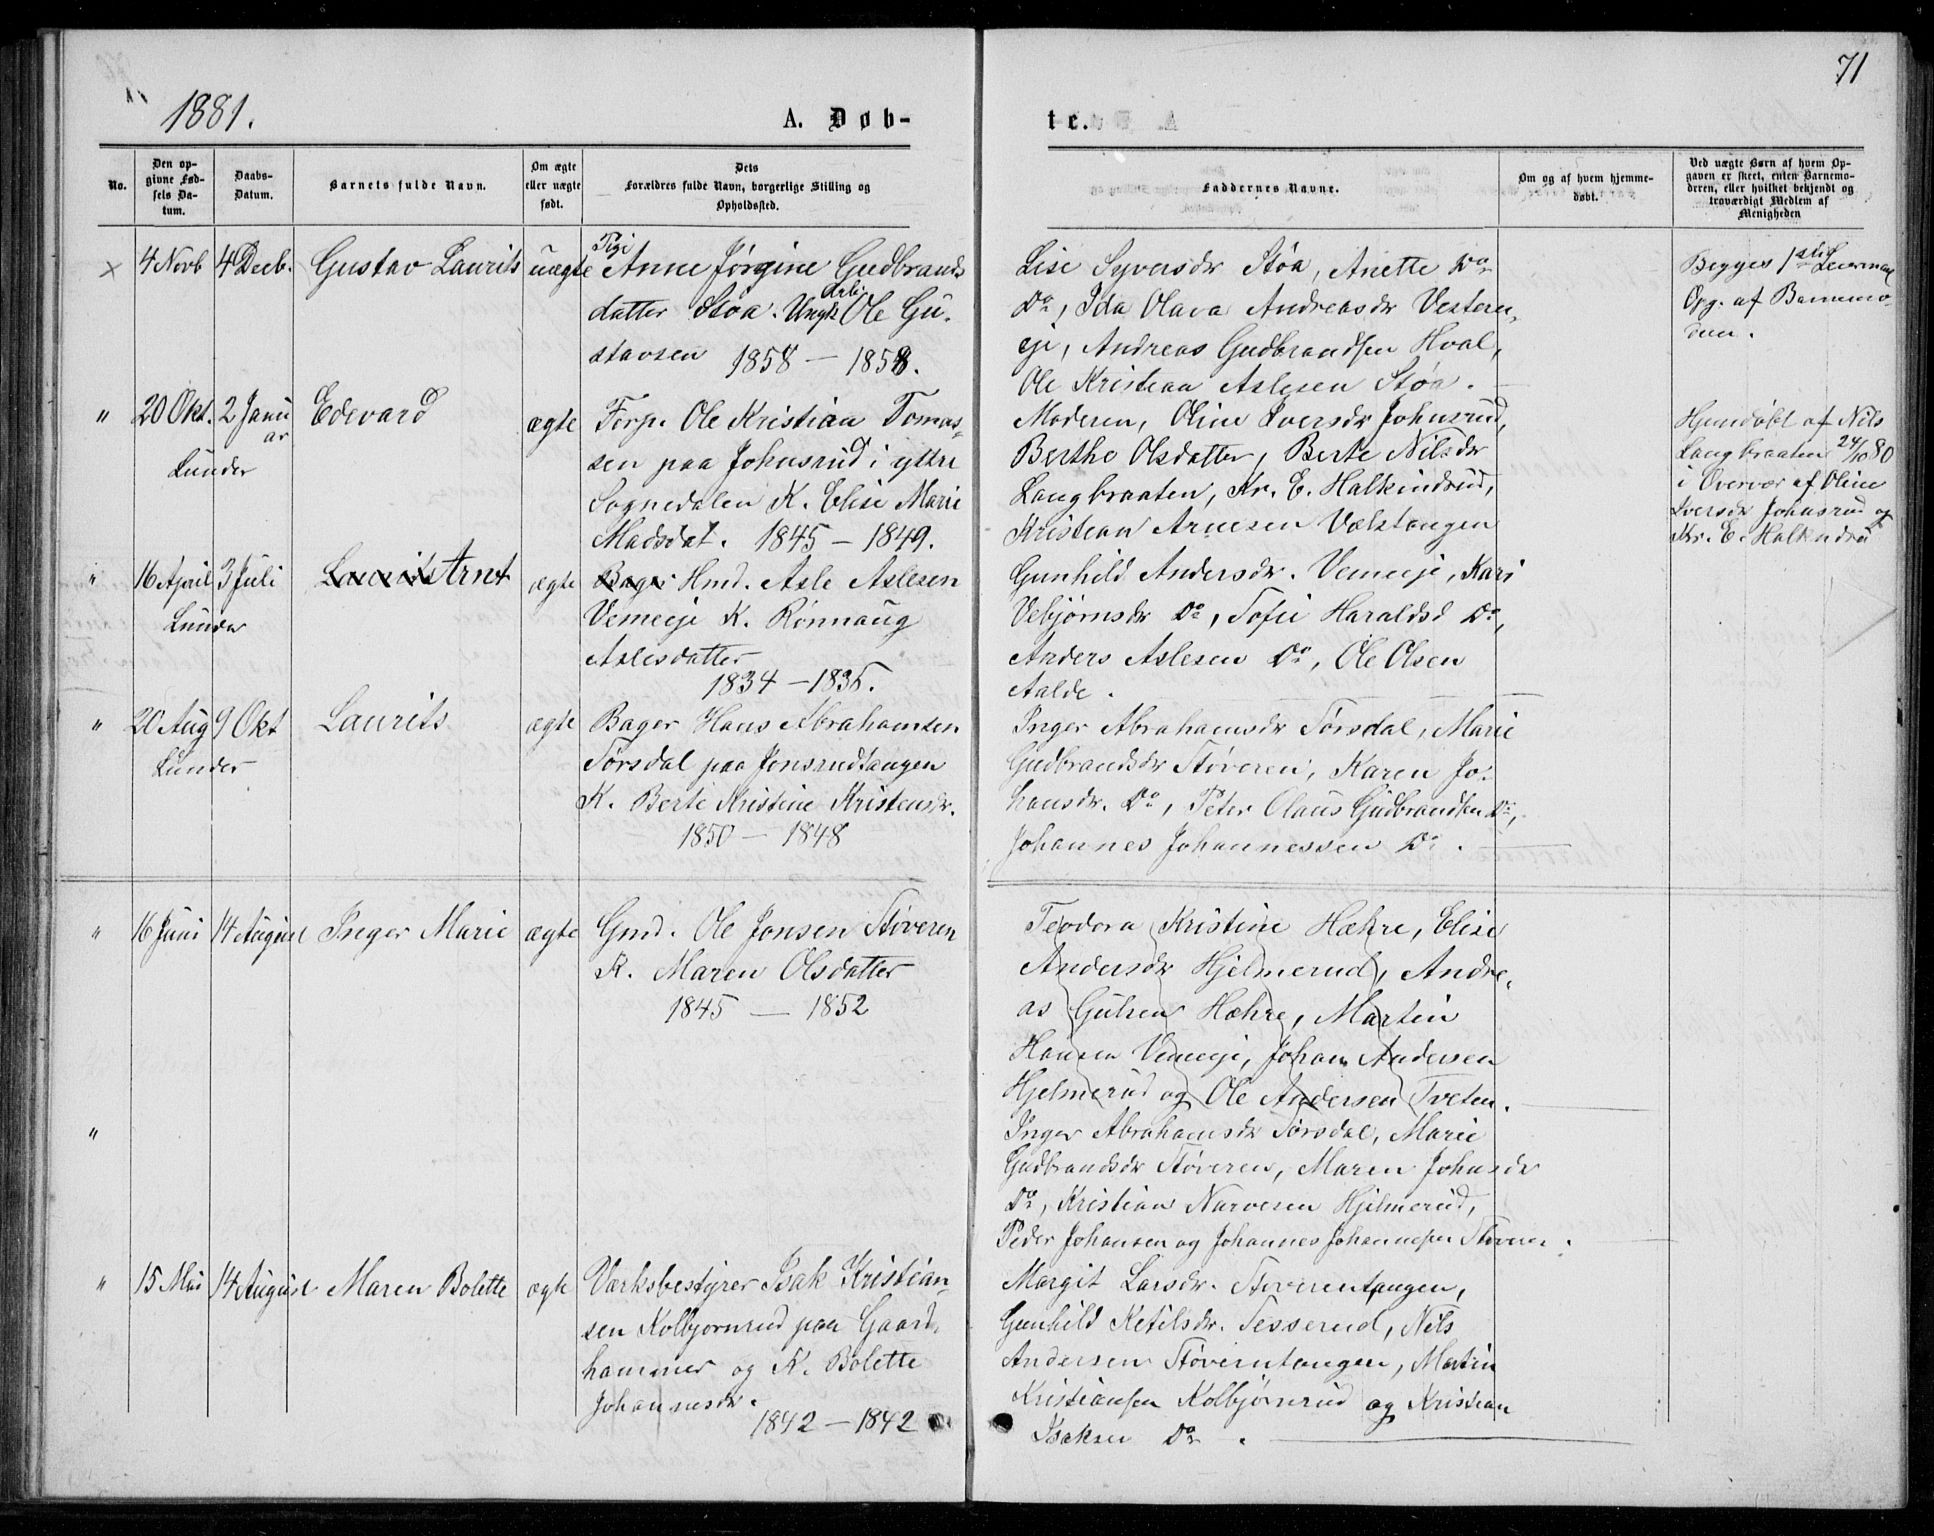 71
1881.
A. Døb-
te.
No.
Den op-
givne Fød-
sels Da-
tum.
Daabs-
Datum.
Barnets fulde Navn.
Om ægte
eller uægte
født.
Dets
Forældres fulde Navn, borgerlige Stilling og
Opholdssted.
Faddernes Navne.
Om og af hvem hjemme-
døbt.
Ved uægte Børn af hvem Op-
gaven er skeet, enten Barnemo-
deren, eller hvilket bekjendt og
troværdigt Medlem af
Menigheden
× 4 Novb 4 Decb. Gustav Laurits uægte
Pige
Anne Jørgine Gudbrands
datter Støa. Ungk. Arb. Ole Gu-
stavsen 1858 – 1858.
Lise Syversdr Støa, Anette Do
Do, Ida Olava Andreasdr Vestern-
eje, Andreas Gudbrandsen Hval,
Ole Kristian Aslesen Støa.
Begges 1ste Leiermaal
Opg. af Barnemo-
deren.
" 20 Okt. 2 Janu
ar
Lunder
Edevard ægte
Forp. Ole Kristian Tomas-
sen paa Johnsrud i yttre
Sognedalen K. Elise Marie
Madsdat. 1845 – 1849.
Moderen, Oline Iversdr Johnsrud,
Berthe Olsdatter, Berte Nilsdr
Langbraaten, Kr. E. Halkindrud,
Kristian Arnesen Vælstangen
Hjemdøbt af Nils
Langbraaten 24/10 80
i Overvær af Oline
Iversdr Johnsrud og
Kr. E. Halkindru
" 16 April 3 Juli
Lunder
Laurits Arnt ægte
Bager Hmd. Asle Aslesen
Vemeeje K. Rønnaug
Aslesdatter
1834 – 1836.
Gunhild Andersdr. Vemeeje, Kari
Vebjørnsdr Do, Sofie Haraldsd Do,
Anders Aslesen Do, Ole Olsen
Aalde.
" 20 Aug 9 Okt
Lunder
Laurits ægte
Bager Hans Abrahamsen
Tørsdal paa Jonsrudtangen
K. Berte Kristine Kristensdr.
1850 – 1848
Inger Abrahamsdr Tørsdal, Marie
Gudbrandsdr Støveren, Karen Jo-
hansdr. Do, Peter Olaus Gudbrandsen Do,
Johannes Johannessen Do.
" 16 Juni 14 August Inger Marie ægte
Gmd. Ole Jonsen Støveren
K. Maren Olsdatter
1845 – 1852
Teodora Kristine Hæhre, Elise
Andersdr Hjelmerud, Andre-
as Gulsen Hæhre, Martin
Hansen Vemeeje, Johan Andersen
Hjelmerud og Ole Andersen Tveten.
"
Inger Abrahamsdr Tørsdal, Marie
Gudbrandsdr Støveren, Maren Johnsdr
Do, Kristian Narvesen Hjelmerud,
Peder Johansen og Johannes Johannesen Støveren.
" 15 Mai 14 August Maren Bolette ægte
Værksbestyrer Isak Kristian-
sen Kolbjørnrud paa Gaard-
hammer og K. Bolette
Johannesdr.
1842 – 1842
Margit Larsdr. Støverentangen,
Gunhild Ketilsdr. Tesserud, Nils
Andersen Støverntangen, Martin
Kristiansen Kolbjørnrud og Kristian
Isaksen Do.